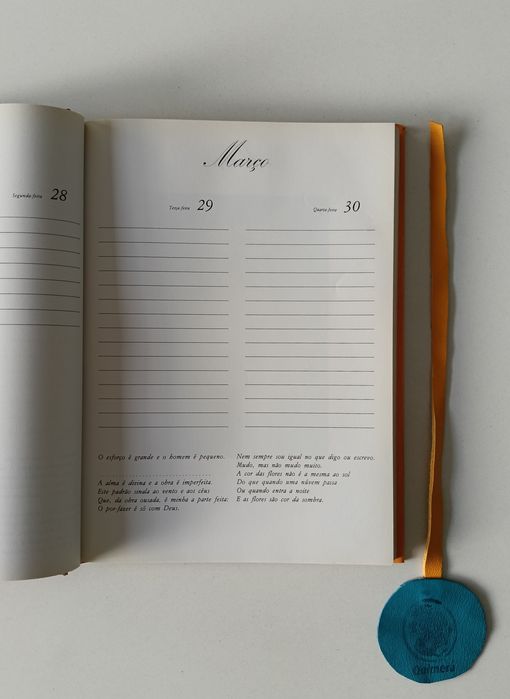 Segunda-feira 28
Março
Terça-feira 29
Quarta-feira 30
O esforço é grande e o homem é pequeno.
A alma é divina e a obra é imperfeita.
Este padrão sinala ao vento e aos céus
Que, da obra ousada, é minha a parte feita:
O por-fazer é só com Deus.
Nem sempre sou igual no que digo ou escrevo.
Mudo, mas não mudo muito.
A cor das flores não é a mesma ao sol
Do que quando uma núvem passa
Ou quando entra a noite
E as flores são cor da sombra.
Quimera